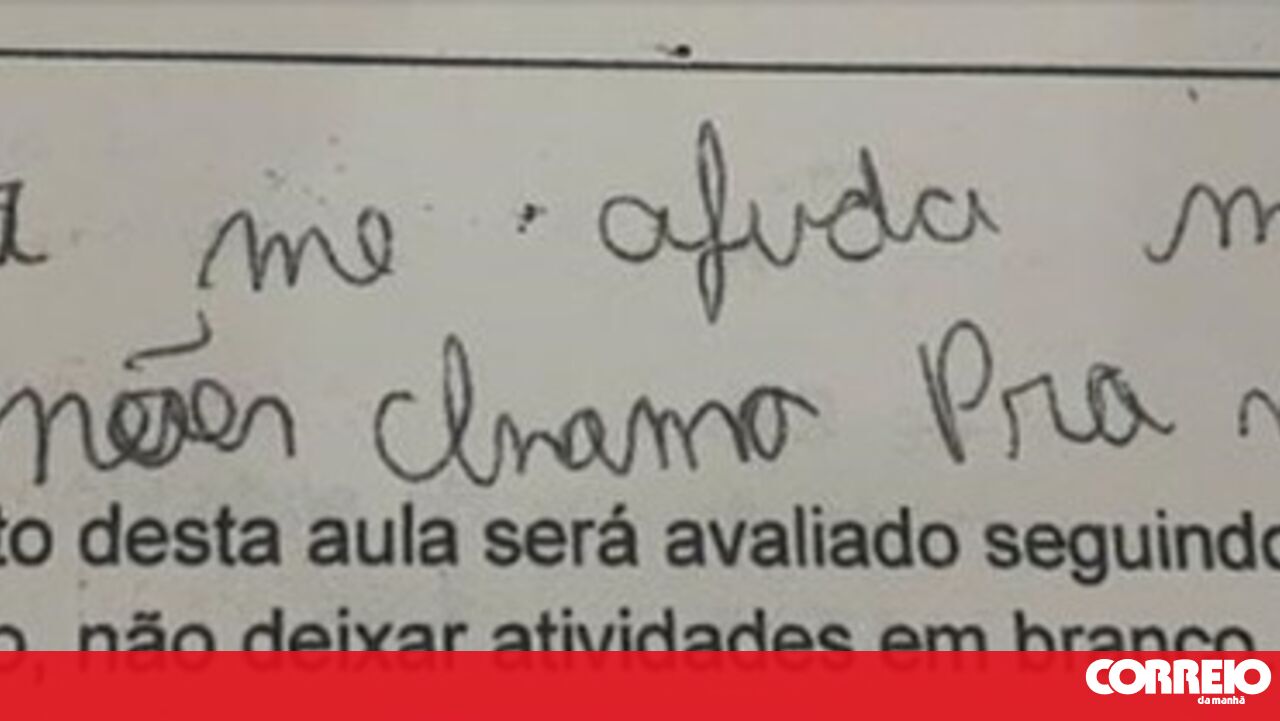 a me ajuda m
não chamo Pra
to desta aula será avaliado seguindo
o, não deixar atividades em branco
CORREIO
da manhã